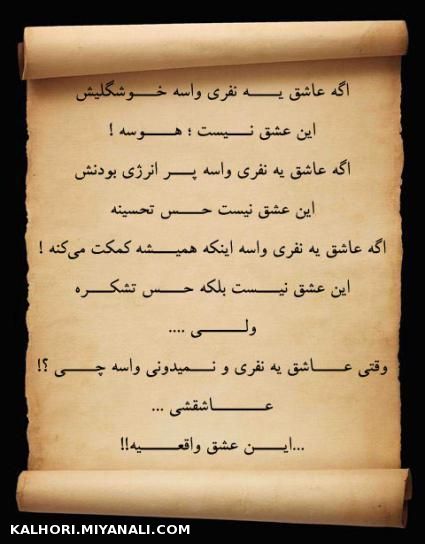 اگه عاشق یـــه نفری واسه خـــوشگلیش
این عشق نـــیست ؛ هـــوسه !
اگه عاشق یه نفری واسه پـــر انرژی بودنش
این عشق نیست حـــس تحسینه
اگه عاشق یه نفری واسه اینکه همیـــشه کمکت می‌کنه !
این عشق نیـــست بلکه حـــس تشکـــره
ولـــــی ....
وقتی عـــاشق یه نفری و نـــمیدونی واسه چـــی ؟!
عـــــاشقشی ...
...ایـــن عشق واقعـــیه!!
KALHORI.MIYANALI.COM